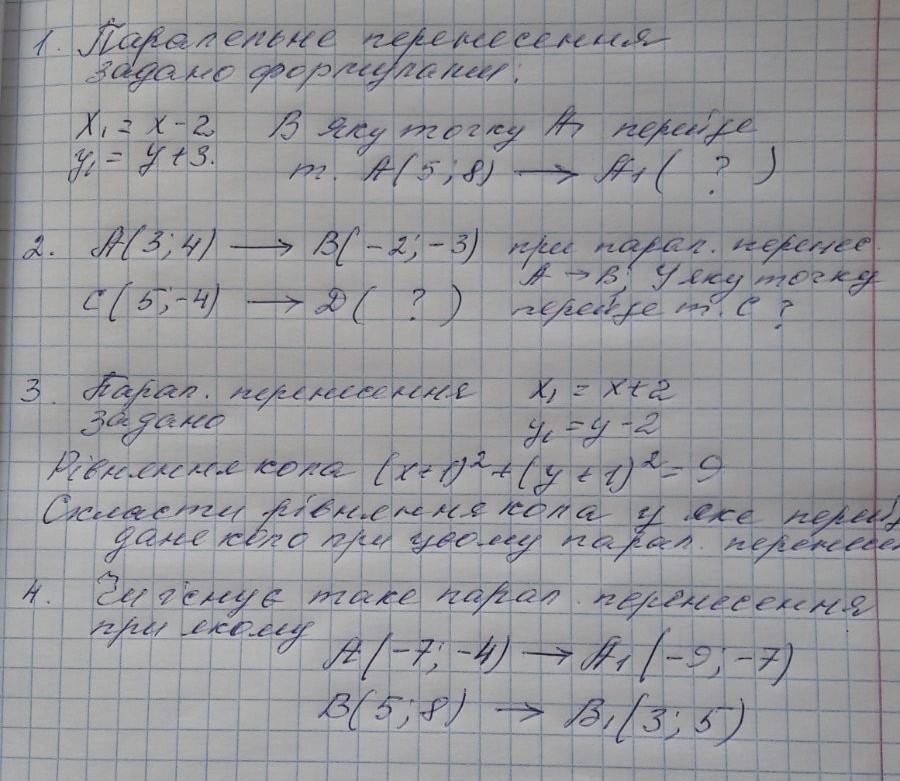 1. Паралельне перенесення
задано формулами:
x₁ = x - 2 В яку точку A₁ перейде
y₁ = y + 3. т. A(5;8) → A₁( ? )
2. A(3;4) → B(-2;-3) при парал. перенес.
A → B; У яку точку
C(5;-4) → D( ? ) перейде т. C ?
3. Парал. перенесення x₁ = x+2
задано y₁ = y-2
Рівняння кола (x+1)² + (y+1)² = 9
Скласти рівняння кола у яке перейд
дане коло при цьому парал. перенесен
4. Чи існує таке парал. перенесення
при якому
A(-7;-4) → A₁(-9;-7)
B(5;8) → B₁(3;5)